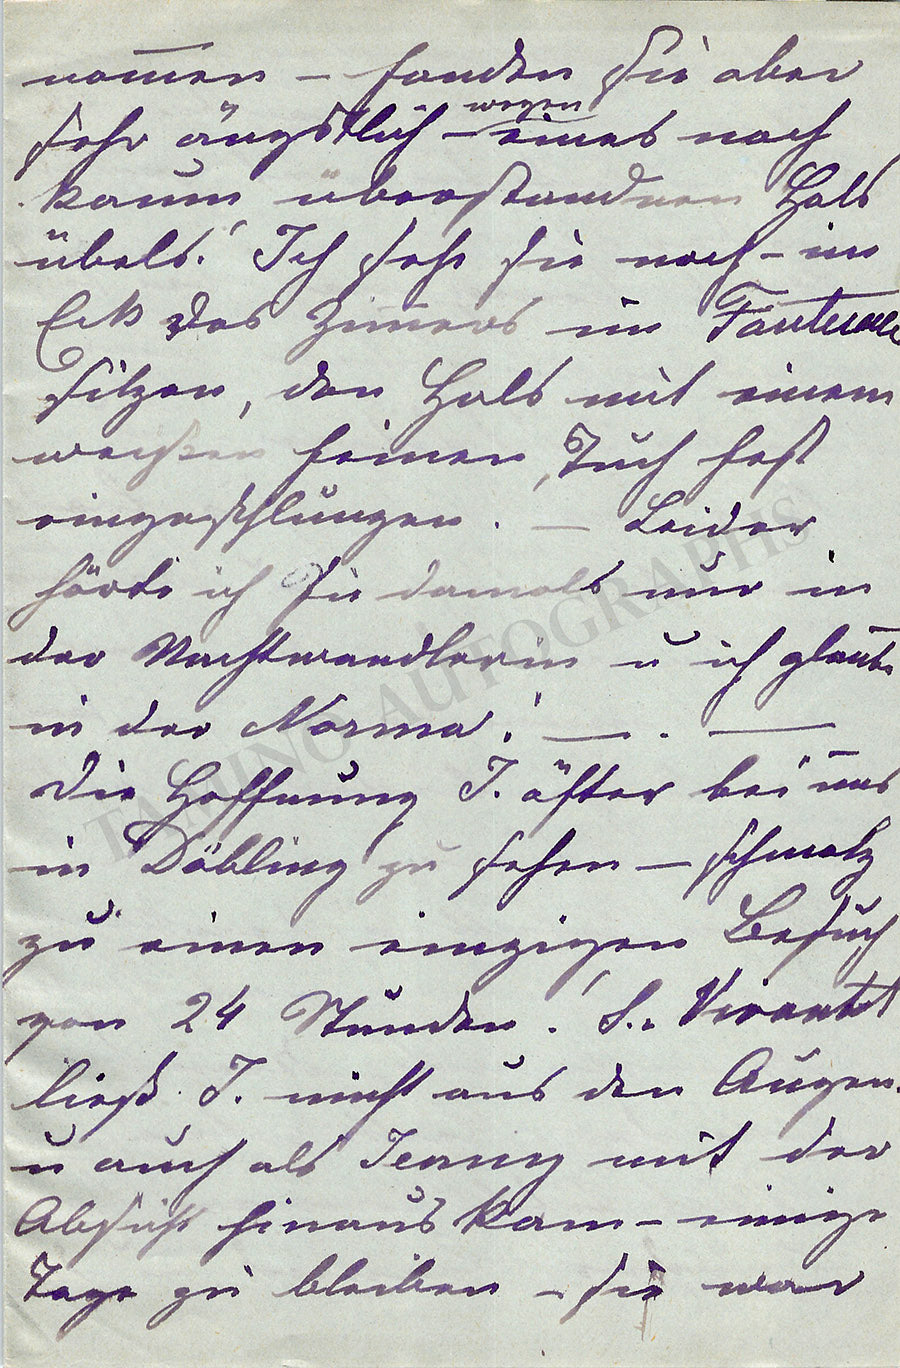 nom̅en – fanden sie aber
sehr ängstlich – wegen eines noch
kaum überstandnen Hals
übels.! Ich sehe sie noch – im
Eck des Zim̅ers im Fauteuil
sitzen, den Hals mit einem
weißen feinen Tuch fest
eingeschlungen. – Leider
hörte ich sie damals nur in
der Nachtwandlerin u ich glaube
in der Norma! — . —
Die Hoffnung J. öfter bei uns
in Döbling zu sehen – schmolz
zu einen einzigen Besuch
von 24 Stunden.!
ließ J. nicht aus den Augen.
u auch als Jenny mit der
Absicht hinaus kam – einige
Tage zu bleiben – sie war
TAMINO AUTOGRAPHS